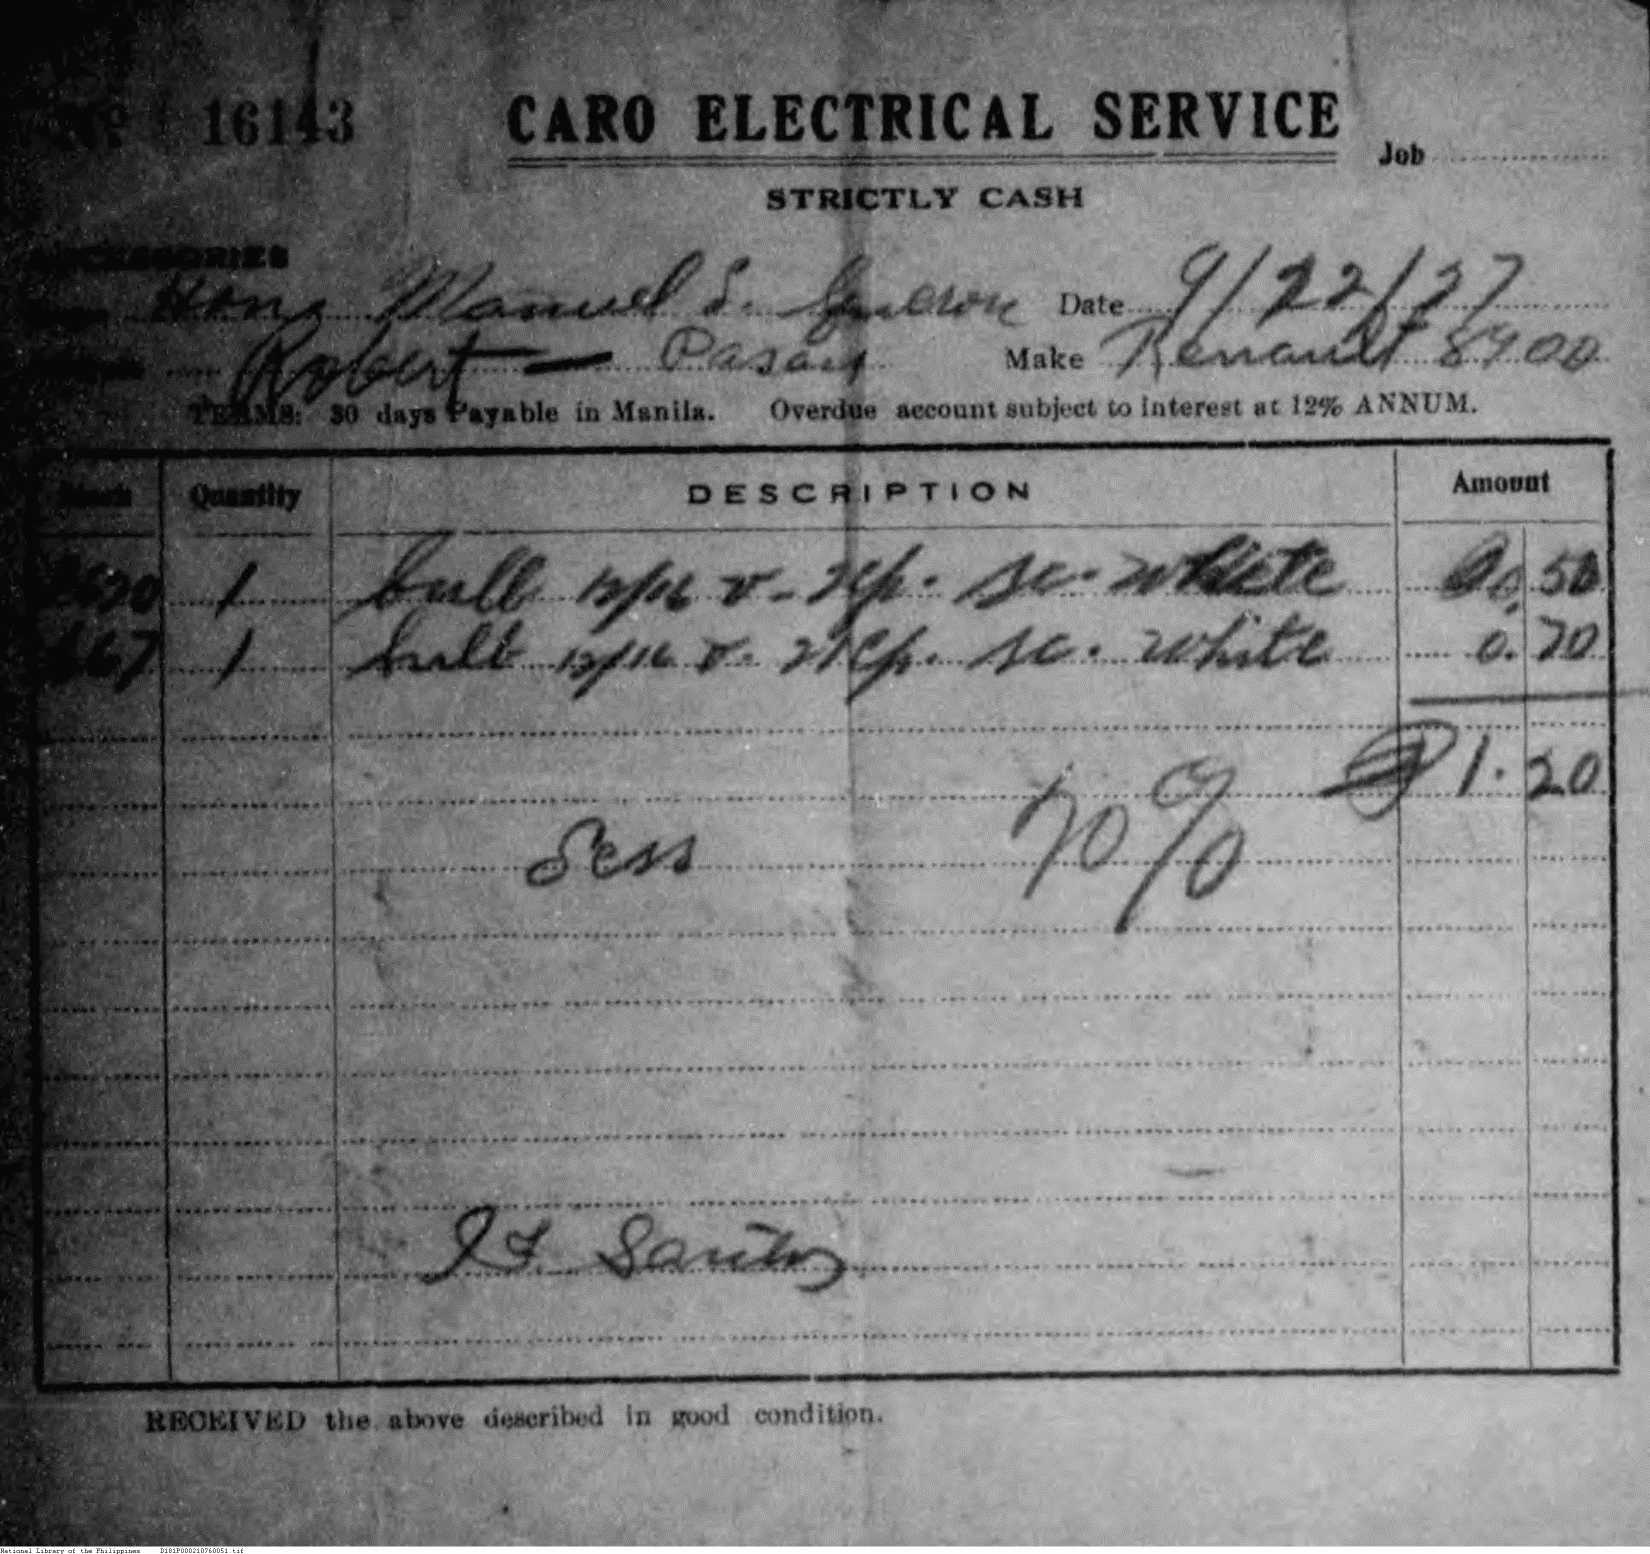 No 16143 CARO ELECTRICAL SERVICE
Job
STRICTLY CASH
ACCESSORIES
Hon. Manuel L. Date 9/22/37
Robert - Pasay Make Renault 8900
TERMS: 30 days Payable in Manila. Overdue account subject to interest at 12% ANNUM.
Quantity DESCRIPTION Amount
1 bulb 12/16 v - cp. sc. white 0.50
67 1 bulb 12/16 v. 21 cp. sc. white 0.70
1.20
Less %
Santos
RECEIVED the above described in good condition.
National Library of the Philippines D101P000210760051.tif